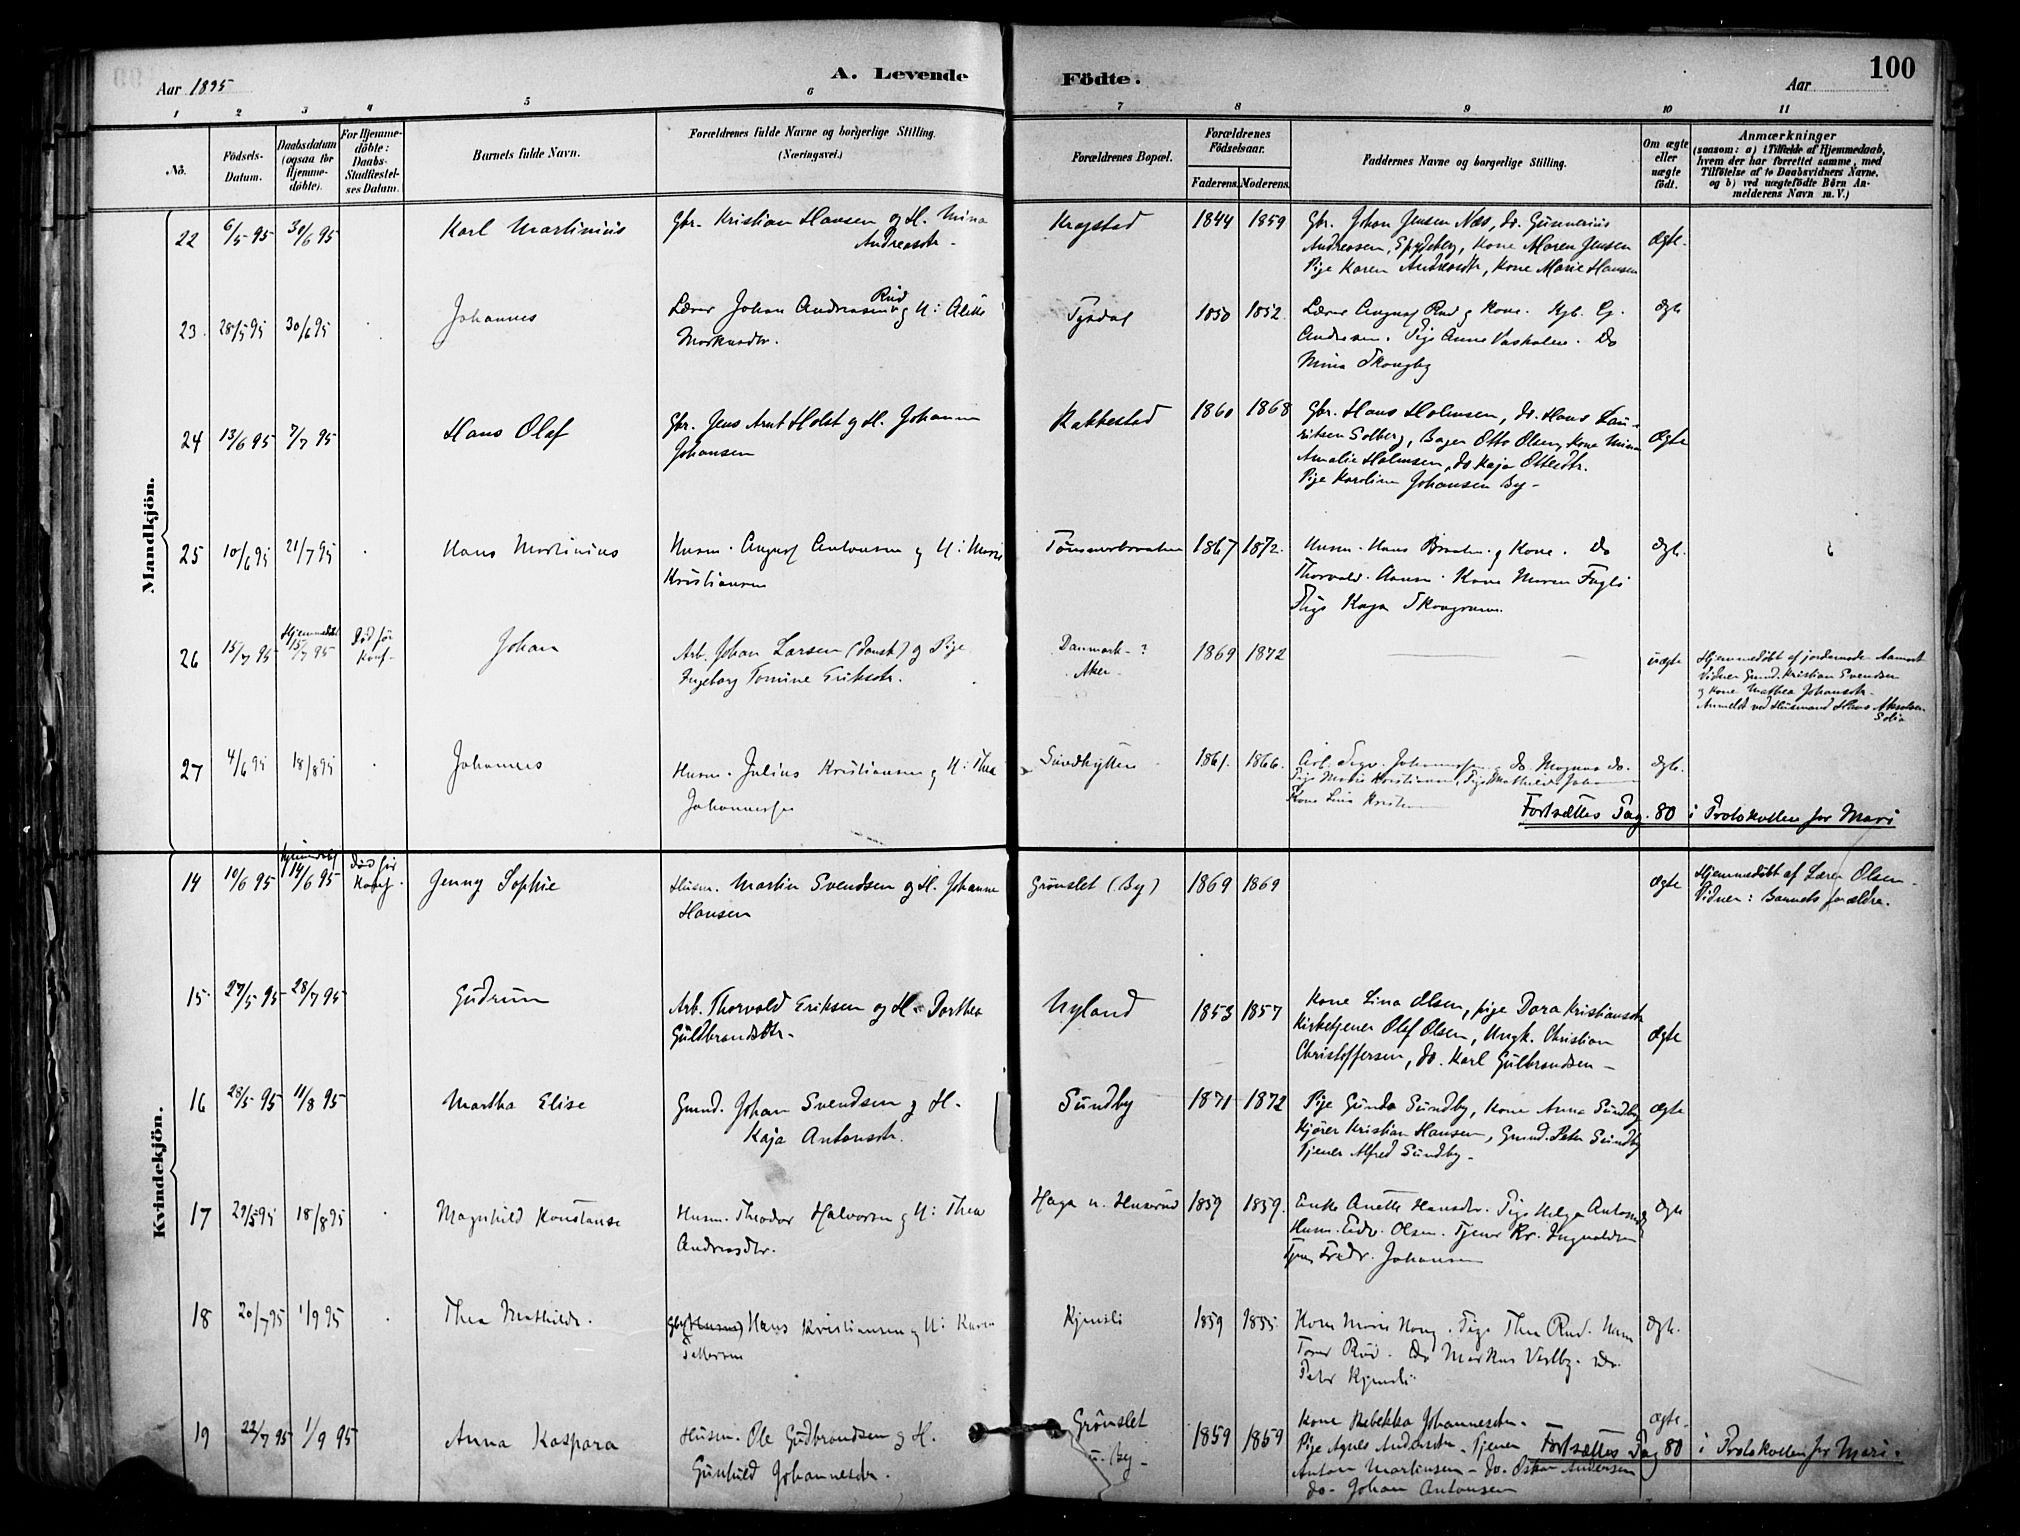 100
Aar 1895
A. Levende Födte.
Aar
1 2 3 4 5 6 7 8 9 10 11
No.
Födsels-Datum.
Daabsdatum (ogsaa for Hjemmedöbte).
For Hjemmedöbte: Daabs-Stadfæstelses Datum.
Barnets fulde Navn.
Forældrenes fulde Navne og borgerlige Stilling. (Næringsvei.)
Forældrenes Bopæl.
Forældrenes Födselsaar.
Faderens. Moderens.
Faddernes Navne og borgerlige Stilling.
Om ægte eller uægte födt.
Anmærkninger
(saasom: a) i Tilfælde af Hjemmedaab,
hvem der har forrettet samme, med
Tilföielse af to Daabsvidners Navne,
og b) ved uægtefödte Börn Anmelderens Navn m. V.)
Mandkjön.
22 6/5 95 30/6 95 Karl Martinius Gbr. Kristian Hansen og H. Mina
Andreasdtr. Kragstad 1844 1859 Gbr. Johan Jensen Næs, do. Gunnerius
Andreasen, Spydeberg, Kone Maren Jensen
Pige Karen Andreasdtr, Kone Marie Hansen
Ægte.
23. 28/5 95 30/6 95 Johannes Lærer Johan Andreasen Rud og H: Alette
Markusdtr. 1850 1852. Lærer August Rud og Kone.
Andresen. Pige Anne Do
Mina Skougby
Ægte
24 13/6 95 7/7 95 Hans Olaf Gbr. Jens Arnt Holst og H. Johanne
Johansen Rakkestad 1860 1868 Gbr. Hans Holmsen, do. Hans Lauritsen Solberg, Bager Otto Olsen, Kone Mina
Amalie Holmsen, do Kaja Ottesdtr.
Pige Karoline Johansen By -
Ægte
25 10/6 95 21/7 95 Hans Martinius Husm. August Antonsen og H: Marie
Kristiansen Tømmerbraaten 1867 1872. Husm. Hans Braaten og Kone. Do
Thorvald Hansen. Kone Maren Fugli
Pige Kaja
Ægte.
26 15/7 95 Hjemmedøbt 15/7 95 Død før Konf- Johan Arb. Johan Larsen (dansk) og Pige
Ingeborg Tomine Eriksdtr. Danmark - ?
Aker. 1869 1872 uægte Hjemmedøbt af jordemoder Aamodt
Vidner Gmd. Kristian Svendsen
og Kone Mathea Johansdtr.
Anmeldt ved Husmand Hans Akselsen
Solie
27 4/6 95 18/8 95 Johannes Husm. Julius Kristiansen og H: Thea
Johannesen Sundhytten 1861. 1866. do Magnus do.
Pige Marie Kristiansen, Pige Mathilde Johan
Kone Lina Kristen
Ægte.
Fortsættes Pag. 80 i Protokollen for Mari
Kvindekjön.
14 10/6 95 Hjemmedøbt 14/6 95 Død før Konf. Jenny Sophie Husm. Martin Svendsen og H. Johanne
Hansen Grønslet (By) 1869 1869 Ægte Hjemmedøbt af Lærer Olsen.
Vidner: Barnets forældre.
15. 27/5 95 28/7 95 Gudrun Arb. Thorvald Eriksen og H. Dorthea
Guldbrandsdtr. Nyland 1853 1857 Kone Lina Olsen, pige Dora Kristiansdtr
Kirketjener Olaf Olsen, Ungk. Christian
Christoffersen, do. Karl Gulbrandsen -
Ægte
16 28/5 95 11/8 95 Martha Elise Gmd. Johan Svendsen og H.
Kaja Antonsdtr. Sundby 1871 1872 Pige Gunda Sundby, Kone Anna Sundby
Kjører Kristian Hansen, Gmd. Peter Sundby
Tjener Alfred Sundby -
Ægte
17 29/5 95 18/8 95 Magnhild Konstanse Husm. Theodor Halvorsen og H: Thea
Andreasdtr. Haga u. Huserud 1859 1859. Enke Anette Hansdtr. Pige Helga Antonsdtr
Husm. Edv. Olsen. Tjener Kr. Ingvaldsen
Tjener Fredr. Johansen
Ægte
18 20/7 95 1/9 95 Thea Mathilde. Gbr. (Husm) Hans Kristiansen og H: Karen
Pettersen Kjensli 1859 1855. Kone Marie Haug. Pige Thea Rud.
Rud. Do Markus Vestby. Do.
Peter Kjensli
Ægte.
19 22/7 95 1/9 95 Anna Kaspara Husm. Ole Gudbrandsen og H.
Gunhild Johannesdtr. Grønslet
u. By - 1859 1859 Kone Rebekka Johannesdtr.
Pige Agnes Andersdtr. Tjener
Anton Martinsen - do. Oskar Andersen
do - Johan Antonsen
Ægte.
Fortsættes Pag 80 i Protokollen for Mari.